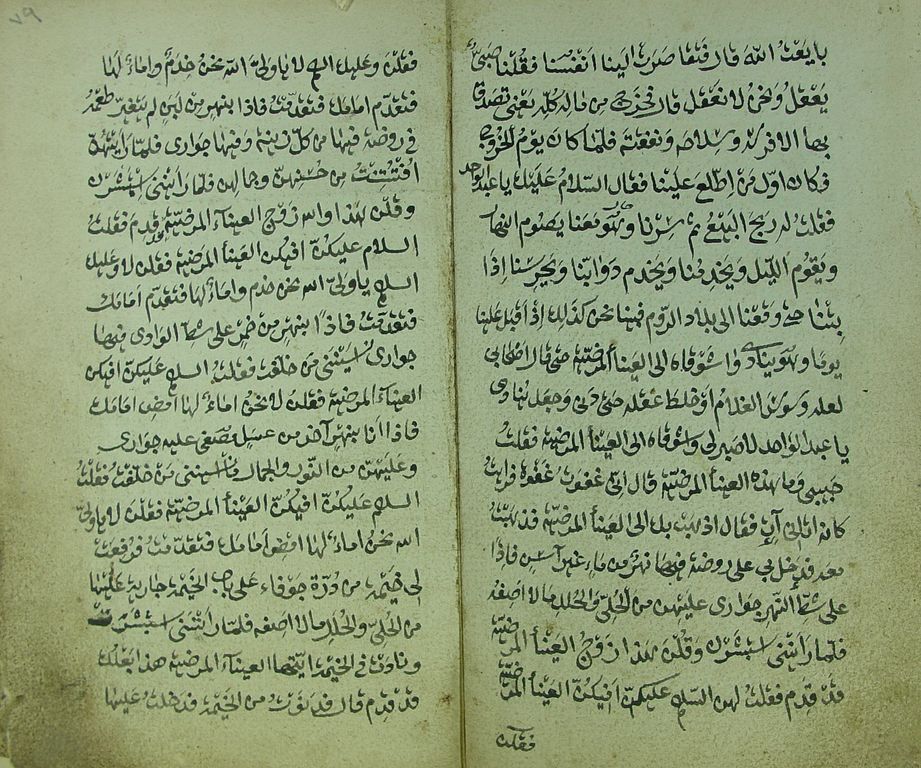 بايعت الله قال فتفاصرت الينا انفسنا فقلنا صبي
يفعل ونحن لا نفعل قال فخرج من ماله كله يعني تصدق
بها الا فرسه وسلاحه ونفقته فلما كان يوم الخروج
فكان اول من اطلع علينا فقال السلام عليك يا عبد الواحد
فقلت له ربح البيع ثم سرنا وهو معنا يصوم النهار
ويقوم الليل ويخدمنا ويخدم دوابنا ويحرسنا اذا
بتنا حتى وقعنا الى بلاد الروم فبينا نحن كذلك اذ اقبل علينا
يوما وهو ينادي واشوقاه الى العينأ المرضية حتى قال اصحابي
لعله وسوس الغلام او خلط عقله حتى دنى وجعل ينادي
يا عبد الواحد لا صبر لي واشوقاه الى العينأ المرضية فقلت
حبيبي وما هذه العينأ المرضية قال اني غفوت غفوة فرايت
كانه اتاني آت فقال اذهب بك الى العينأ المرضية فذهبت
معه فدخل بي على روضة فيها نهر من ماء غير آسن فاذا
على شط النهر جواري عليهن من الحلي والحلل ما لا اصفه
فلما راتني استبشرن وقلن هذا زوج العينأ المرضية
قد قدم فقلت لهن السلام عليكن افيكن العينأ المرضية
فقلن
٧٩
فقلن وعليك السلام لا يا ولي الله نحن خدم واماء لها
فتقدم امامك فتقدمت فاذا بنهر من لبن لم يتغير طعمه
في روضة فيها من كل زينة وفيها جواري فلما رايتهن
افتتنت من حسنهن وجمالهن فلما راتني استبشرن
وقلن هذا والله زوج العينآء المرضية وقد قدم فقلت
السلام عليكن افيكن العينأ المرضية فقلن لا وعليك
السلام يا ولي الله نحن خدم واماء لها فتقدم امامك
فتقدمت فاذا بنهر من خمر على شط الوادي فيها
جواري انسيتني من خلفت فقلت السلام عليكن افيكن
العينآء المرضية فقلن لا نحن اماء لها امض امامك
فاذا انا بنهر آخر من عسل مصفى عليه جواري
وعليهن من النور والجمال ما انسيتني من خلفت فقلت
السلام عليكن افيكن العينأ المرضية فقلن لا يا ولي
الله نحن اماء لها امض امامك فتقدمت فرفعت
الى خيمة من درة جوفاء على باب الخيمة جارية عليها
من الحلي والحلل ما لا اصفه فلما راتني استبشرت
ونادت في الخيمة ايتها العينآء المرضية هذا بعلك
قد قدم قال فدنوت من الخيمة فدخلت عليها